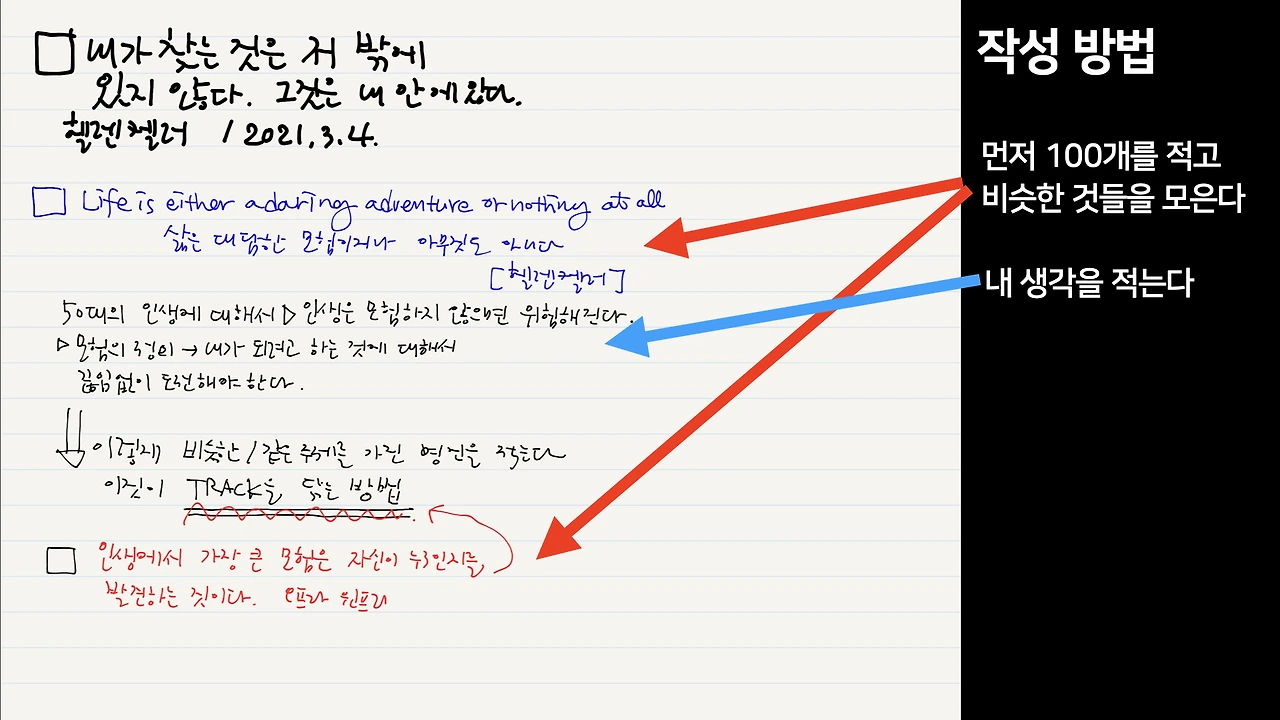 내가 찾는 것은 저 밖에
있지 않다. 그것은 내 안에 있다.
헬렌켈러 / 2021.3.4.
Life is either a daring adventure or nothing at all
삶은 대담한 모험이거나 아무것도 아니다
[헬렌켈러]
50대의 인생에 대해서 ▷ 인생은 모험하지 않으면 위험해진다.
▷ 모험의 정의 → 내가 되려고 하는 것에 대해서
끊임없이 도전해야 한다.
이렇게 비슷한 / 같은 주제를 가진 명언을 적는다
이것이 TRACK을 닦는 방법.
인생에서 가장 큰 모험은 자신이 누구인지를
발견하는 것이다. 오프라 윈프리
작성 방법
먼저 100개를 적고
비슷한 것들을 모은다
내 생각을 적는다